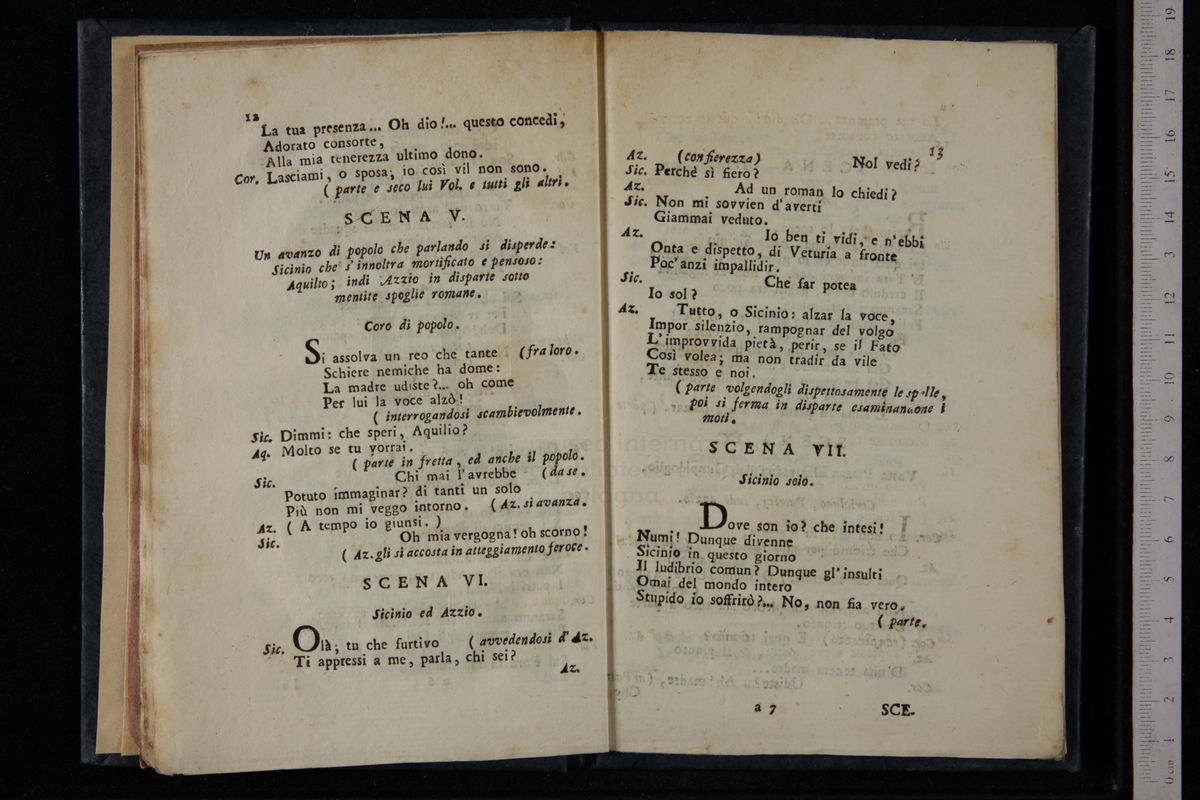 12
La tua presenza... Oh dio!... questo concedi,
Adorato consorte,
Alla mia tenerezza ultimo dono.
Cor. Lasciami, o sposa; io così vil non sono.
( parte e seco lui Vol. e tutti gli altri.
SCENA V.
Un avanzo di popolo che parlando si disperde:
Sicinio che s'innoltra mortificato e pensoso:
Aquilio; indi Azzio in disparte sotto
mentite spoglie romane.
Coro di popolo.
Si assolva un reo che tante (fra loro.
Schiere nemiche ha dome:
La madre udiste?... oh come
Per lui la voce alzò!
( interrogandosi scambievolmente.
Sic. Dimmi: che speri, Aquilio?
Aq. Molto se tu vorrai.
( parte in fretta, ed anche il popolo.
Sic. Chi mai l'avrebbe (da se.
Potuto immaginar? di tanti un solo
Più non mi veggo intorno. (Az. si avanza.
Az. ( A tempo io giunsi. )
Sic. Oh mia vergogna! oh scorno!
( Az. gli si accosta in atteggiamento feroce.
SCENA VI.
Sicinio ed Azzio.
Sic. Olà; tu che furtivo (avvedendosi d'Az.
Ti appressi a me, parla, chi sei?
Az.
13
Az. (con fierezza) Nol vedi?
Sic. Perchè sì fiero?
Az. Ad un roman lo chiedi?
Sic. Non mi sovvien d'averti
Giammai veduto.
Az. Io ben ti vidi, e n'ebbi
Onta e dispetto, di Veturia a fronte
Poc'anzi impallidir.
Sic. Che far potea
Io sol?
Az. Tutto, o Sicinio: alzar la voce,
Impor silenzio, rampognar del volgo
L'improvvida pietà, perir, se il Fato
Così volea; ma non tradir da vile
Te stesso e noi.
( parte volgendogli dispettosamente le spalle,
poi si ferma in disparte esaminandone i
moti.
SCENA VII.
Sicinio solo.
Dove son io? che intesi!
Numi! Dunque divenne
Sicinio in questo giorno
Il ludibrio comun? Dunque gl'insulti
Omai del mondo intero
Stupido io soffrirò?... No, non fia vero.
( parte.
a 7 SCE-